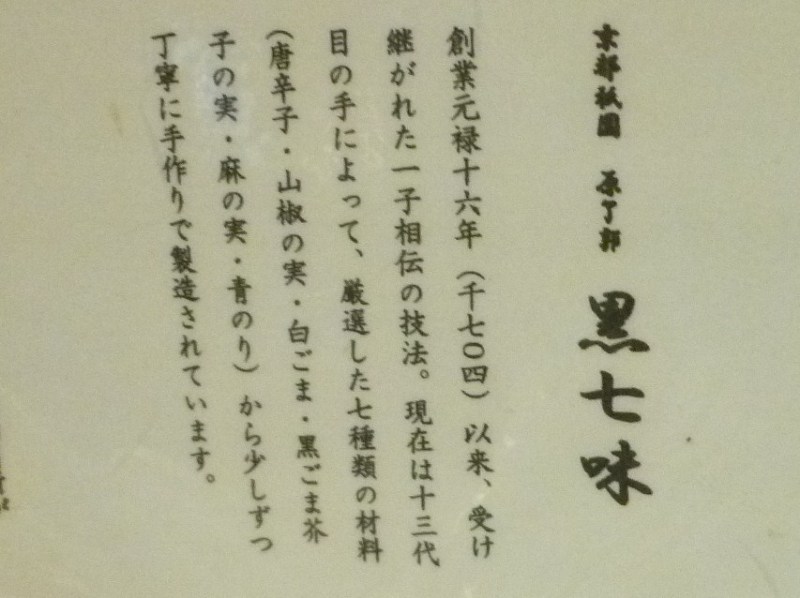 京都祇園 原了郭 黒七味
創業元禄十六年(千七〇四)以来、受け
継がれた一子相伝の技法。現在は十三代
目の手によって、厳選した七種類の材料
(唐辛子・山椒の実・白ごま・黒ごま芥
子の実・麻の実・青のり)から少しずつ
丁寧に手作りで製造されています。